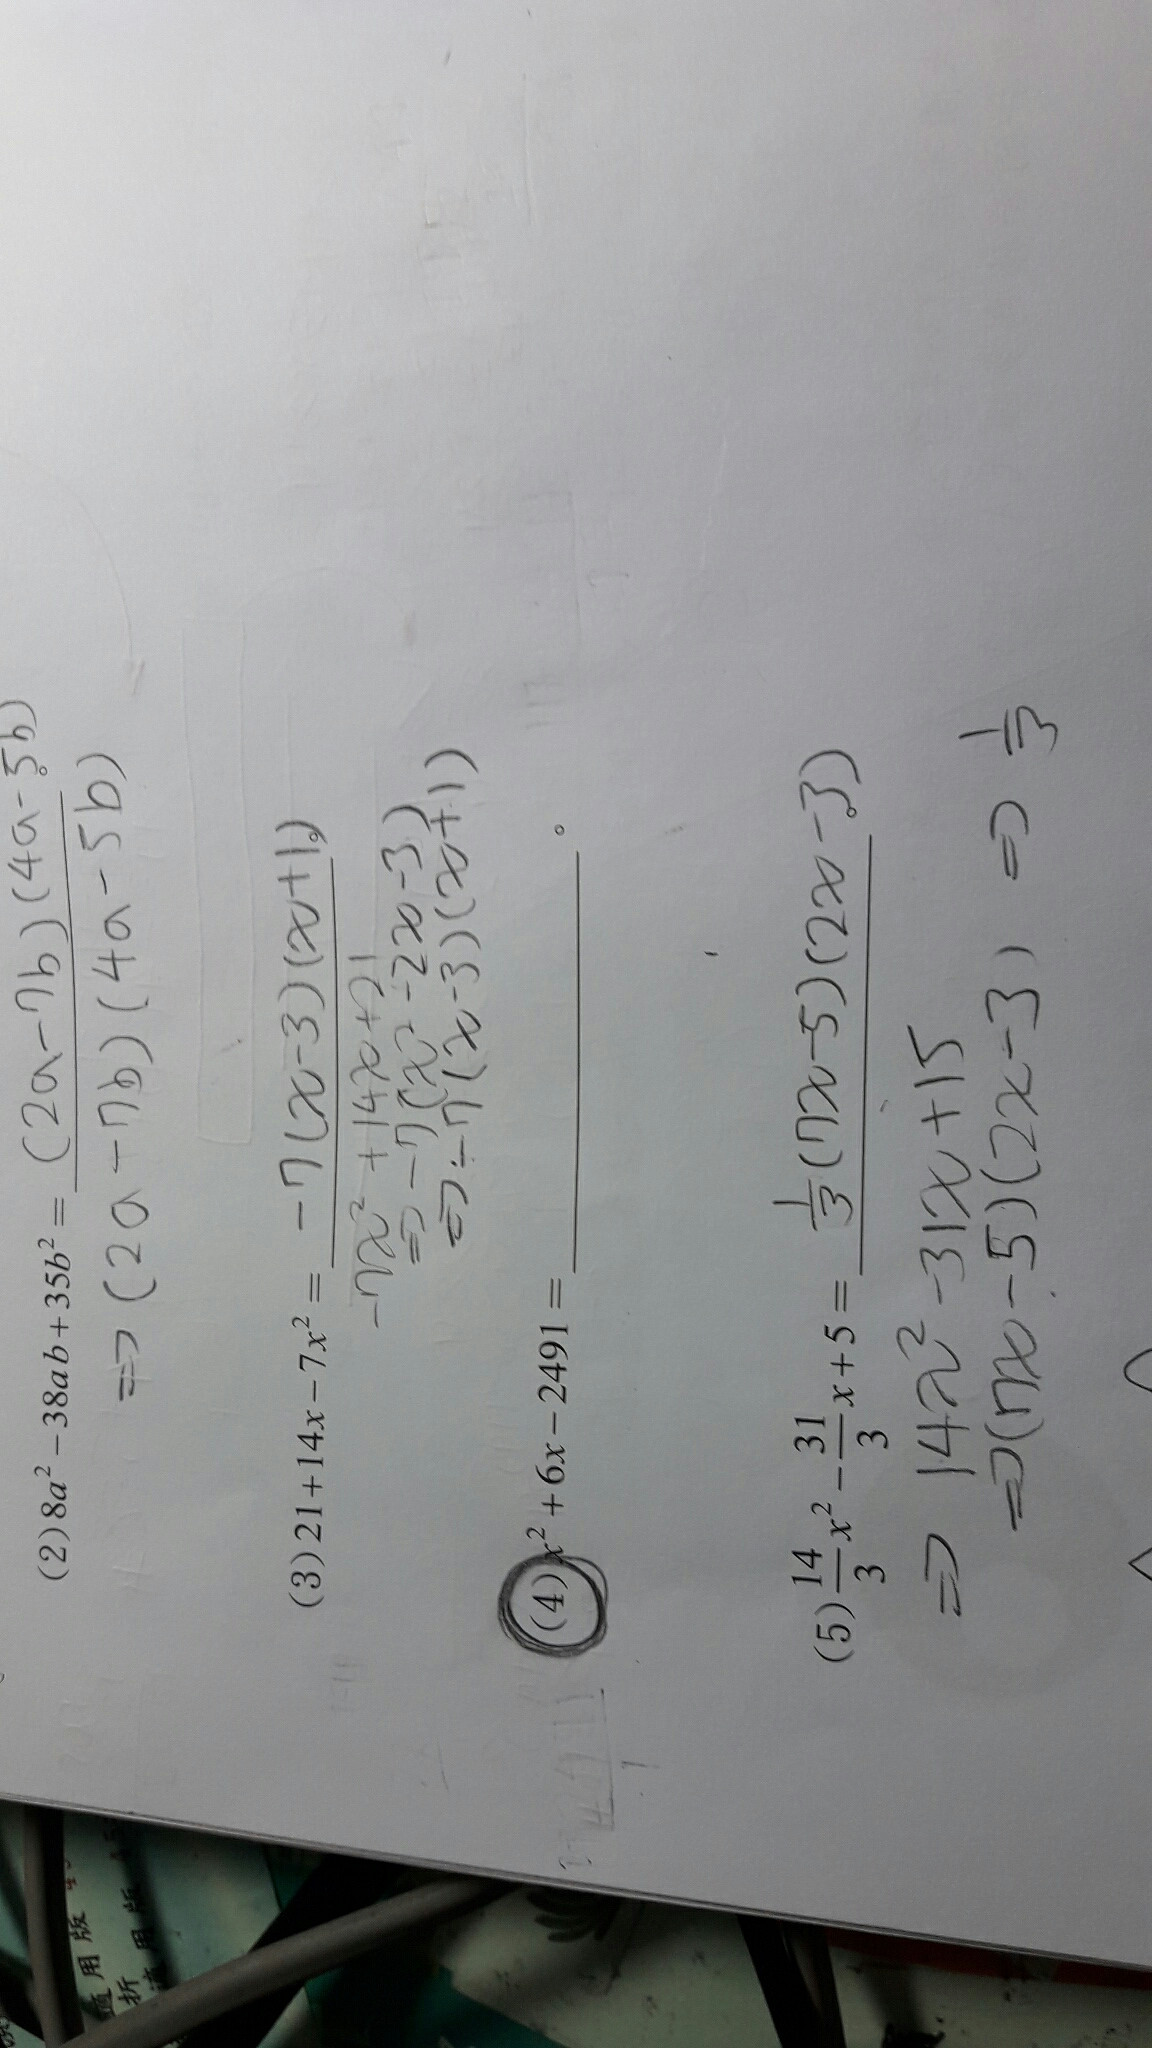 (2) 8a² − 38ab + 35b² = (2a−7b)(4a−5b)。
=> (2a−7b)(4a−5b)
(3) 21 + 14x − 7x² = −7(x−3)(x+1)。
−7x² + 14x + 21
=> −7(x² − 2x − 3)
=> −7(x−3)(x+1)
(4) x² + 6x − 2491 = ________。
(5) 14/3 x² − 31/3 x + 5 = 1/3 (7x−5)(2x−3)。
=> 14x² − 31x + 15
=> (7x−5)(2x−3) => 1/3
用版
折
用版